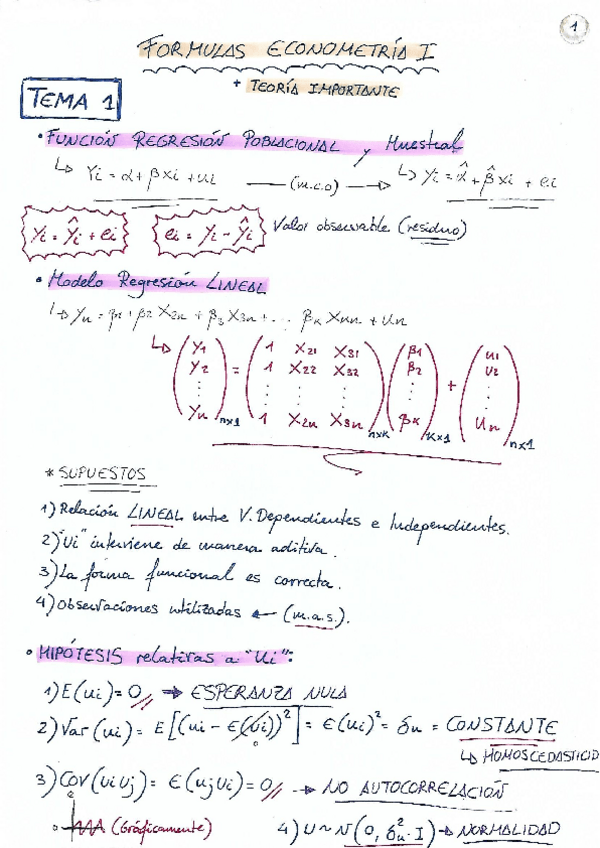 1
FORMULAS ECONOMETRÍA I
+ TEORÍA IMPORTANTE
TEMA 1
• FUNCIÓN REGRESIÓN POBLACIONAL y Muestral
↳ Yi = α + βxi + ui —(m.c.o)→ ↳ yi = α̂ + β̂xi + ei
yi = ŷi + ei ei = yi - ŷi Valor observable (residuo)
• Modelo Regresión LINEAL
↳ Yn = β1 + β2 X2n + β3 X3n + ... βK XKn + Un
↳ (Y1 Y2 ⋮ Yn)nx1 = (1 X21 X31 1 X22 X32 ⋮ ⋮ ⋮ 1 X2n X3n)nxK (β1 β2 ⋮ βK)Kx1 + (u1 u2 ⋮ Un)nx1
* SUPUESTOS
1) Relación LINEAL entre V. Dependientes e Independientes.
2) "Ui" interviene de manera aditiva.
3) La forma funcional es correcta.
4) Observaciones utilizadas ← (m.a.s.).
• HIPÓTESIS relativas a "Ui":
1) E(ui) = 0 // → ESPERANZA NULA
2) Var(ui) = E[(ui - E(ui))²] = E(ui)² = δu = CONSTANTE
0
↳ HOMOSCEDASTICID
3) COV(UiUj) = E(ujui) = 0 // → NO AUTOCORRELACIÓN
(Gráficamente) 4) U ~ N(0, δ²u · I) → NORMALIDAD